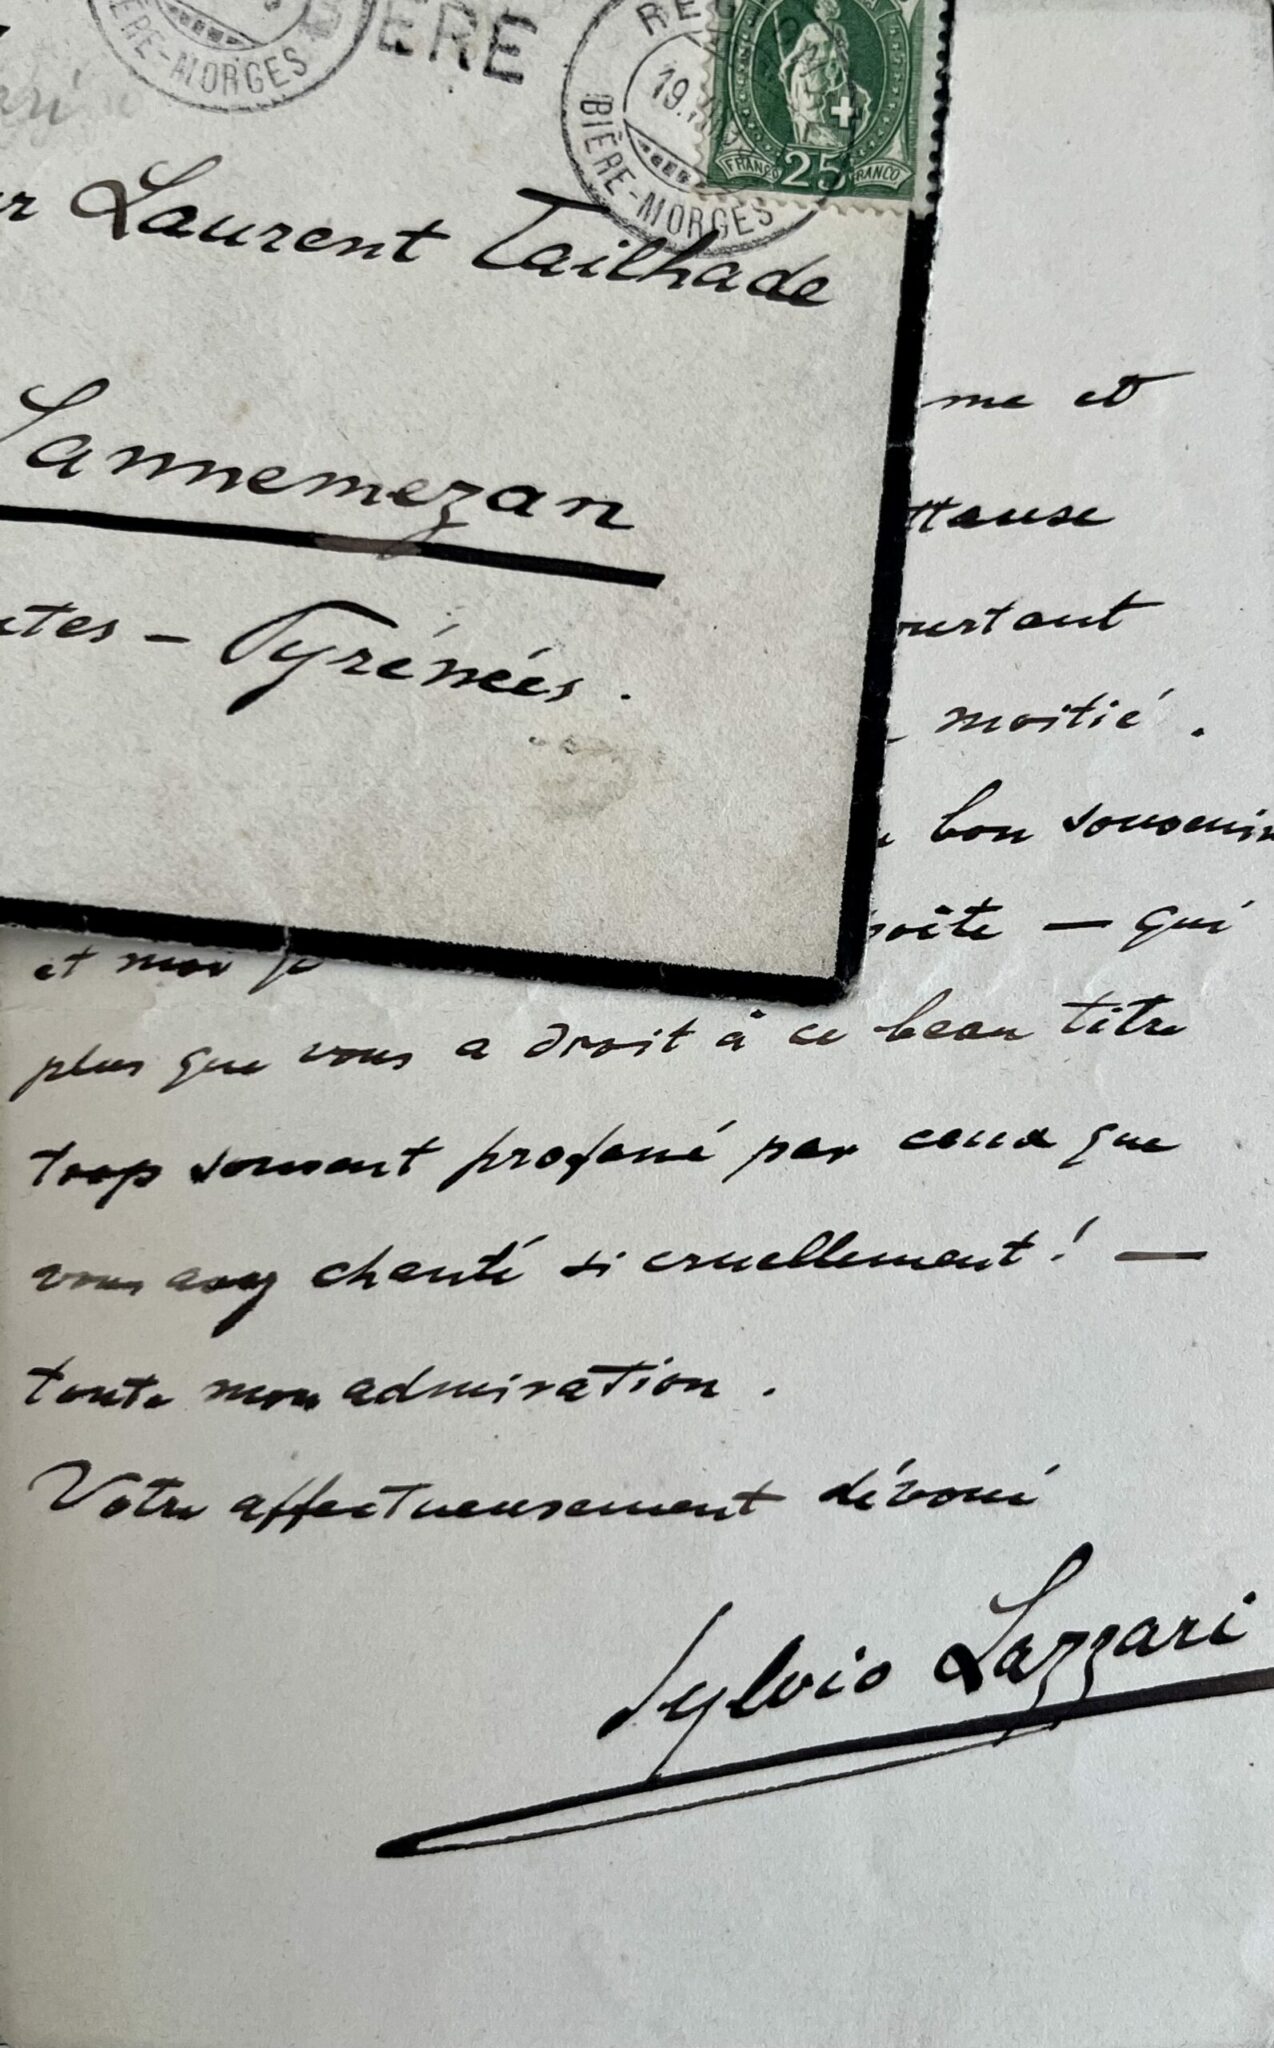 BIÈRE-MORGES
ÈRE
REG
19.
BIÈRE-MORGES
25
FRANCO
FRANCO
Laurent Tailhade
Lannemezan
utes - Pyrénées.
me et
ourtant
moitié.
bon souvenir
poëte — qui
et moi je
plus que vous a droit à ce beau titre
trop souvent profané par ceux que
vous avez chanté si cruellement! —
toute mon admiration.
Votre affectueusement dévoué
Sylvio Lazzari